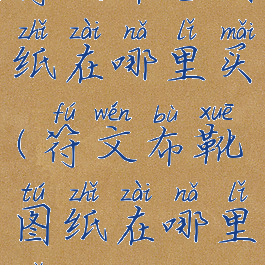 zhǐ zài nǎ lǐ mǎi
纸在哪里买
fú wén bù xuē
(符文布靴
tú zhǐ zài nǎ lǐ
图纸在哪里